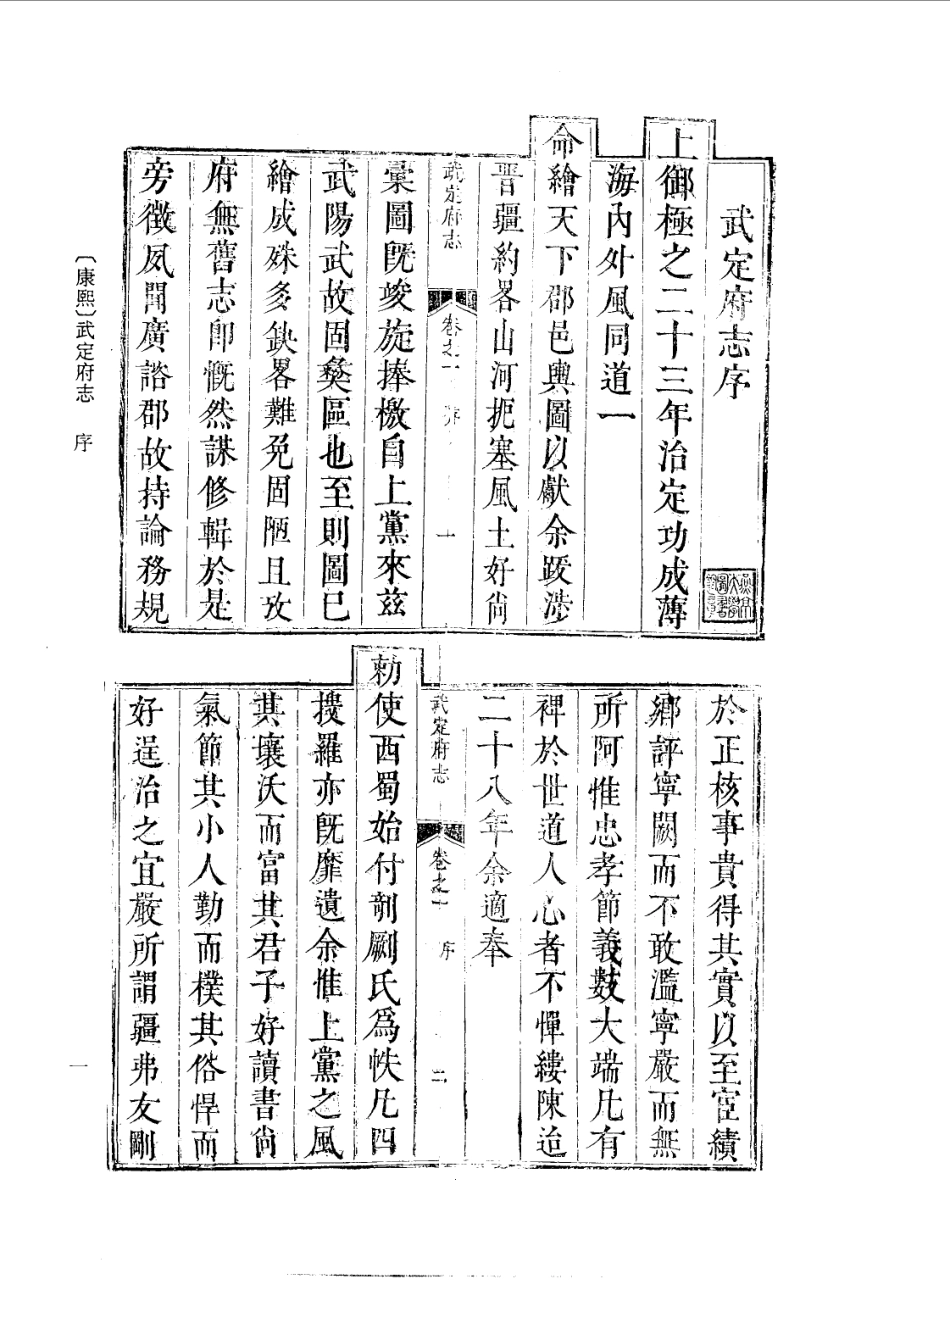 武定府志序
上御極之二十三年治定功成薄
海內外風同道一
命繪天下郡邑輿圖以獻余跋涉
晉疆約畧山河扼塞風土好尙
武定府志 卷之一 序 一
彙圖旣竣旋捧檄自上黨來茲
武陽武故固彝區也至則圖已
繪成殊多缺畧難免固陋且攷
府無舊志卽慨然謀修輯於是
旁徵夙聞廣諮郡故持論務規
於正核事貴得其實以至宦績
鄉評寧闕而不敢濫寧嚴而無
所阿惟忠孝節義數大端凡有
裨於世道人心者不憚縷陳迨
二十八年余適奉
武定府志 卷之一 序 二
勅使西蜀始付剞劂氏爲帙凡四
搜羅亦旣靡遺余惟上黨之風
其壤沃而富其君子好讀書尙
氣節其小人勤而樸其俗悍而
好逞治之宜嚴所謂疆弗友剛
〔康熙〕武定府志 序
一